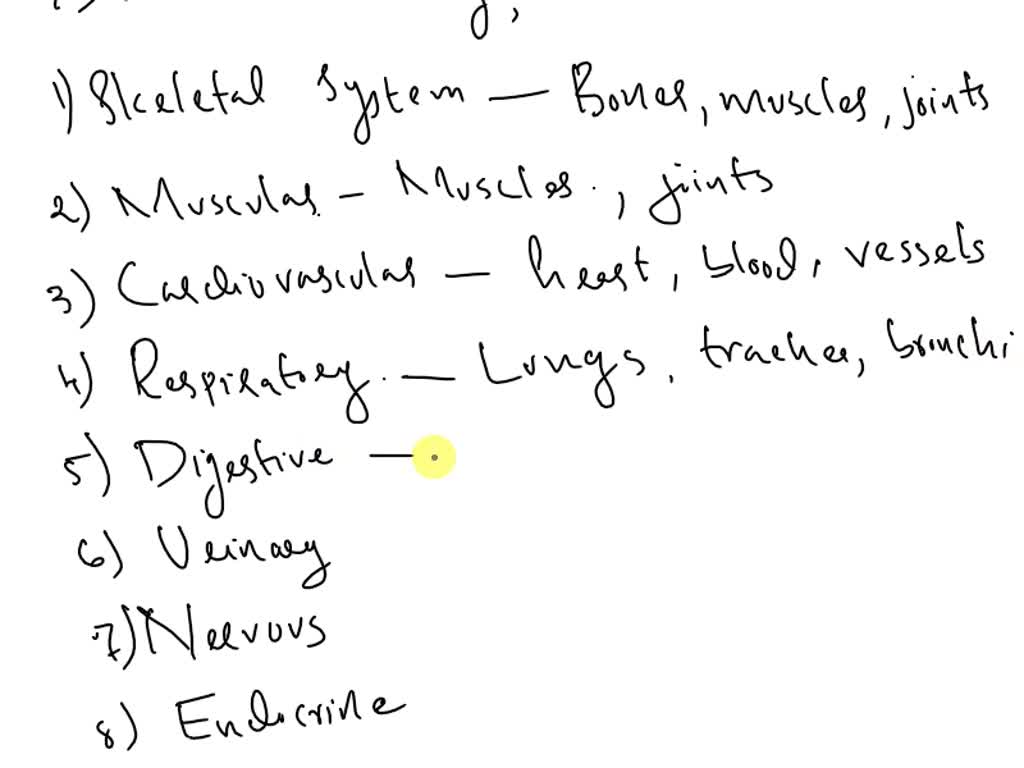 1) Skeletal System — Bones, muscles, joints
2) Muscular - Muscles, joints
3) Cardiovascular — heart, blood, vessels
4) Respiratory — Lungs, trachea, bronchi
5) Digestive —
6) Urinary
7) Nervous
8) Endocrine